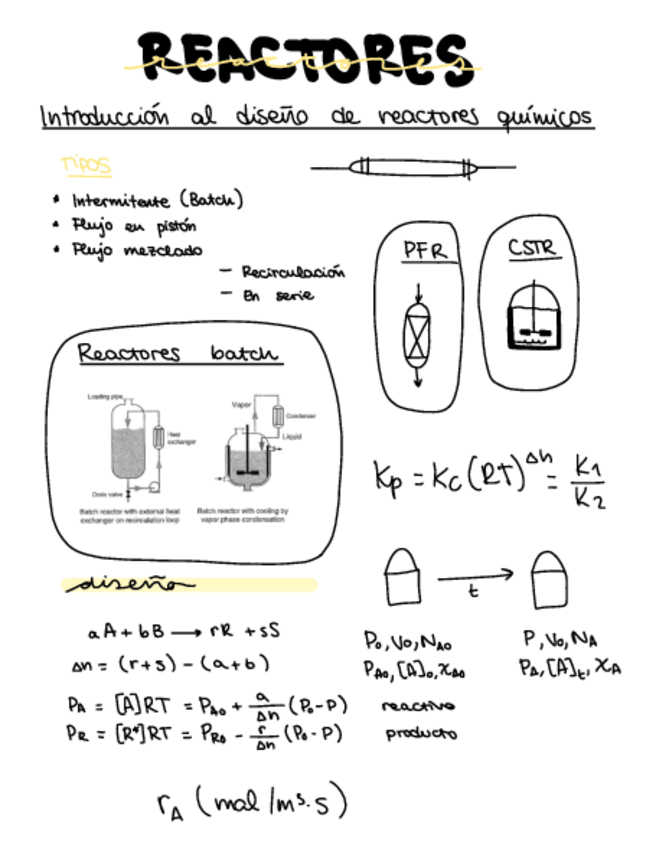 REACTORES
reactores
Introducción al diseño de reactores químicos
TIPOS
• Intermitente (Batch)
• Flujo en pistón
• Flujo mezclado
– Recirculación
– En serie
PFR
CSTR
Reactores batch
Loading pipe
Heat exchanger
Drain valve
Batch reactor with external heat
exchanger on recirculation loop
Vapor
Condenser
Liquid
Batch reactor with cooling by
vapor phase condensation
Kp = Kc (RT)^Δn = K1/K2
diseño
t
aA + bB → rR + sS
Δn = (r+s) – (a+b)
PA = [A]RT = PA0 + a/Δn (P0-P) reactivo
PR = [R*]RT = PR0 - r/Δn (P0-P) producto
P0, V0, NA0
PA0, [A]0, XA0
P, V0, NA
PA, [A]t, XA
rA (mol/m³·s)